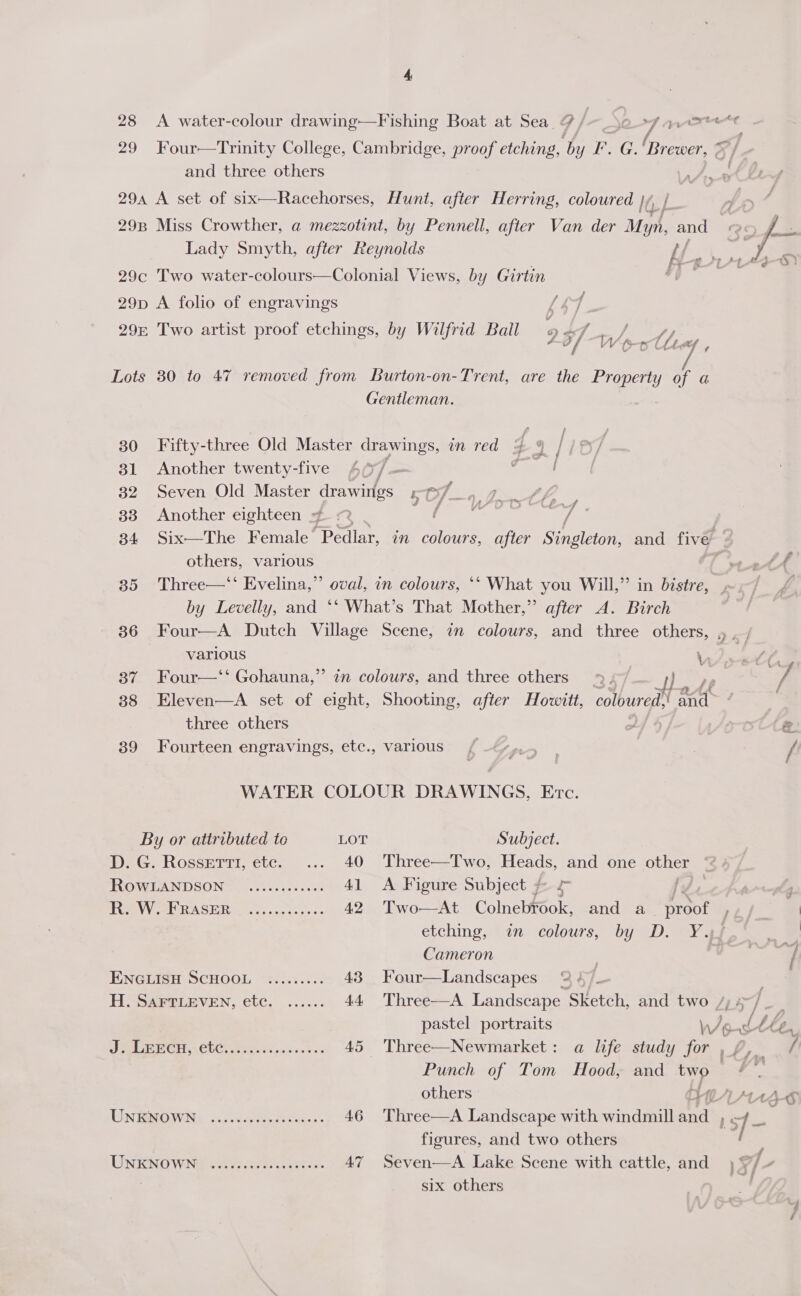 4
28 A water-colour drawing—Fishing Boat at Sea
29 Four—Trinity College, Cambridge, proof etching, by F. G. Brewer,
and three others
29A A set of six—Racehorses, Hunt, after Herring, coloured
29B Miss Crowther, a mezzotint, by Pennell, after Van der Myn, and
Lady Smyth, after Reynolds
29C Two water-colours—Colonial Views, by Girtin
29D A folio of engravings
29E Two artist proof etchings, by Wilfrid Ball
Lots 30 to 47 removed from Burton-on-Trent, are the Property of a
Gentleman.
30 Fifty-three Old Master drawings, in red
31 Another twenty-five
32 Seven Old Master drawings
33 Another eighteen
34 Six—The Female Pedlar, in colours, after Singleton, and five
others, various
35 Three—“ Evelina,” oval, in colours, “ What you Will,” in bistre,
by Levelly, and “ What’s That Mother,” after A. Birch
36 Four—A Dutch Village Scene, in colours, and three others,
various
37 Four—“ Gohauna,” in colours, and three others
38 Eleven—A set of eight, Shooting, after Howitt, coloured, and
three others
39 Fourteen engravings, etc., various
WATER COLOUR DRAWINGS, Etc.
By or attributed to LOT Subject.
D. G. Rossetti, etc. ... 40 Three—Two, Heads, and one other
Rowlandson ............ 41 A Figure Subject
R. W. Fraser ............ 42 Two—At Colnebrook, and a proof
etching, in colours, by D. Y.
Cameron
English School ......... 43 Four—Landscapes
H. Saftleven, etc. ...... 44 Three—A Landscape Sketch, and two
pastel portraits
J. Leech, etc............... 45 Three—Newmarket : a life study for
Punch of Tom Hood, and two
others
Unknown .................. 46 Three—A Landscape with windmill and
figures, and two others
Unknown .................. 47 Seven—A Lake Scene with cattle, and
six others